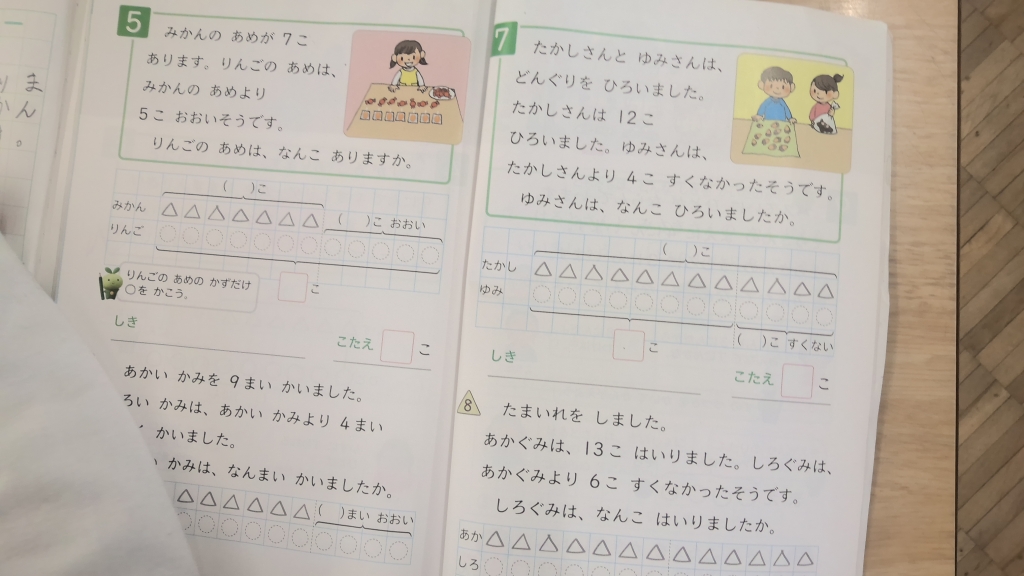 5
みかんの あめが 7こ
あります。りんごの あめは、
みかんの あめより
5こ おおいそうです。
りんごの あめは、なんこ ありますか。
( )こ
みかん
( )こ おおい
りんご
こ
りんごの あめの かずだけ
○を かこう。
しき
こたえ こ
あかい かみを 9まい かいました。
ろい かみは、あかい かみより 4まい
かいました。
かみは、なんまい かいましたか。
( )まい おおい
7
たかしさんと ゆみさんは、
どんぐりを ひろいました。
たかしさんは 12こ
ひろいました。ゆみさんは、
たかしさんより 4こ すくなかったそうです。
ゆみさんは、なんこ ひろいましたか。
( )こ
たかし
ゆみ
こ
( )こ すくない
しき
こたえ こ
8
たまいれを しました。
あかぐみは、13こ はいりました。しろぐみは、
あかぐみより 6こ すくなかったそうです。
しろぐみは、なんこ はいりましたか。
あか
しろ